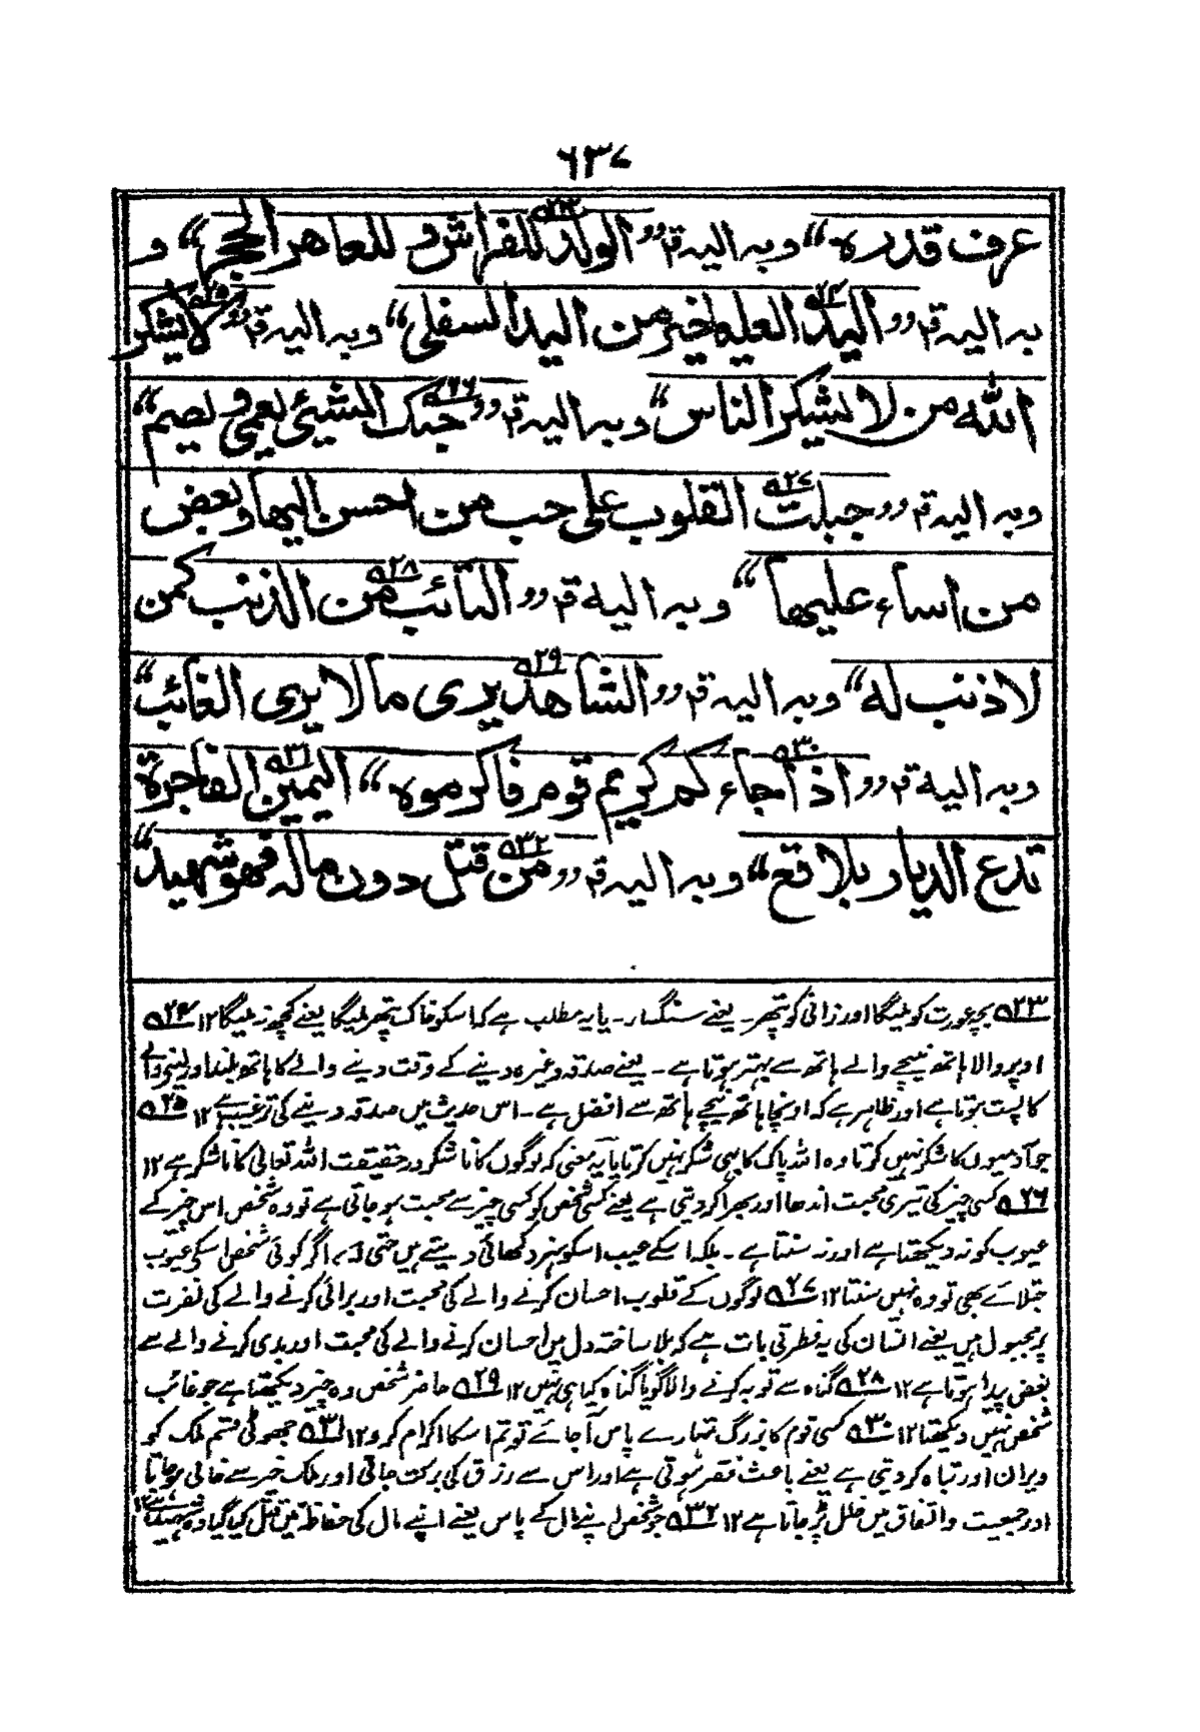 ٦٣٧
عرف قدره“ وبه اليه قم ”الولد للفراش و للعاهر الحجر“ و
به اليه قم ”اليد العليا خير من اليد السفلى“ وبه اليه قم ”لا يشكر
الله من لا يشكر الناس“ وبه اليه قم ”حبك الشيئ يعمى و يصم“
وبه اليه قم ”جبلت القلوب على حب من احسن اليها و بغض
من اساء عليها“ وبه اليه قم ”التائب من الذنب كمن
لا ذنب له“ وبه اليه قم ”الشاهد يرى ما لا يرى الغائب“
وبه اليه قم ”اذا جاءكم كريم قوم فاكرموه“ اليمين الفاجرة
تدع الديار بلا قع“ وبه اليه قم ”من قتل دون ماله فهو شهيد“
۵۲۳ بچہ عورت کو ملیگا اور زانی کو پتھر۔ یعنے سنگسار۔ یا یہ مطلب ہے کہ اسکو خاک پتھر ملیگا یعنے کچھ نہ ملیگا ۱۲ ۵۲۴
اوپر والا ہاتھ نیچے والے ہاتھ سے بہتر ہوتا ہے۔ یعنے صدقہ وغیرہ دینے کے وقت دینے والے کا ہاتھ بلند اور لینے والے
کا پست ہوتا ہے اور ظاہر ہے کہ اونچا ہاتھ نیچے ہاتھ سے افضل ہے۔ اس حدیث میں صدقہ دینے کی ترغیب ہے ۱۲ ۵۲۵
جو آدمیوں کا شکر نہیں کرتا وہ اللہ پاک کا بھی شکر نہیں کرتا یا یہ معنی کہ لوگوں کا نا شکر در حقیقت اللہ تعالیٰ کا نا شکر ہے ۱۲
۵۲۶ کسی چیز کی تیری محبت اندھا اور بہرا کر دیتی ہے یعنے کسی شخص کو کسی چیز سے محبت ہو جاتی ہے تو وہ شخص اس چیز کے
عیوب کو نہ دیکھتا ہے اور نہ سنتا ہے۔ بلکہ اسکے عیب اسکو ہنر دکھائی دیتے ہیں حتی کہ اگر کوئی شخص اسکی عیوب
جتلائے بھی تو وہ نہیں سنتا ۱۲ ۵۲۷ لوگوں کے قلوب احسان کرنے والے کی محبت اور برائی کرنے والے کی نفرت
پر مجبول ہیں یعنے انسان کی یہ فطرتی بات ہے کہ بلا ساختہ دل میں احسان کرنے والے کی محبت اور بدی کرنے والے سے
بغض پیدا ہوتا ہے ۱۲ ۵۲۸ گناہ سے توبہ کرنے والا گویا گناہ کیا ہی نہیں ۱۲ ۵۲۹ حاضر شخص وہ چیز دیکھتا ہے جو غائب
شخص نہیں دیکھتا ۱۲ ۵۳۰ کسی قوم کا بزرگ تمہارے پاس آ جائے تو تم اسکا اکرام کرو ۱۲ ۵۳۱ جھوٹی قسم ملک کو
ویران اور تباہ کر دیتی ہے یعنے باعث فقر ہوتی ہے اور اس سے رزق کی برکت جاتی اور ملک خیر سے خالی ہو جاتا
اور جمعیت و اتفاق میں خلل پڑ جاتا ہے ۱۲ ۵۳۲ جو شخص اپنے مال کے پاس یعنے اپنے مال کی حفاظت میں قتل کیا گیا وہ شہید ہے ۱۲